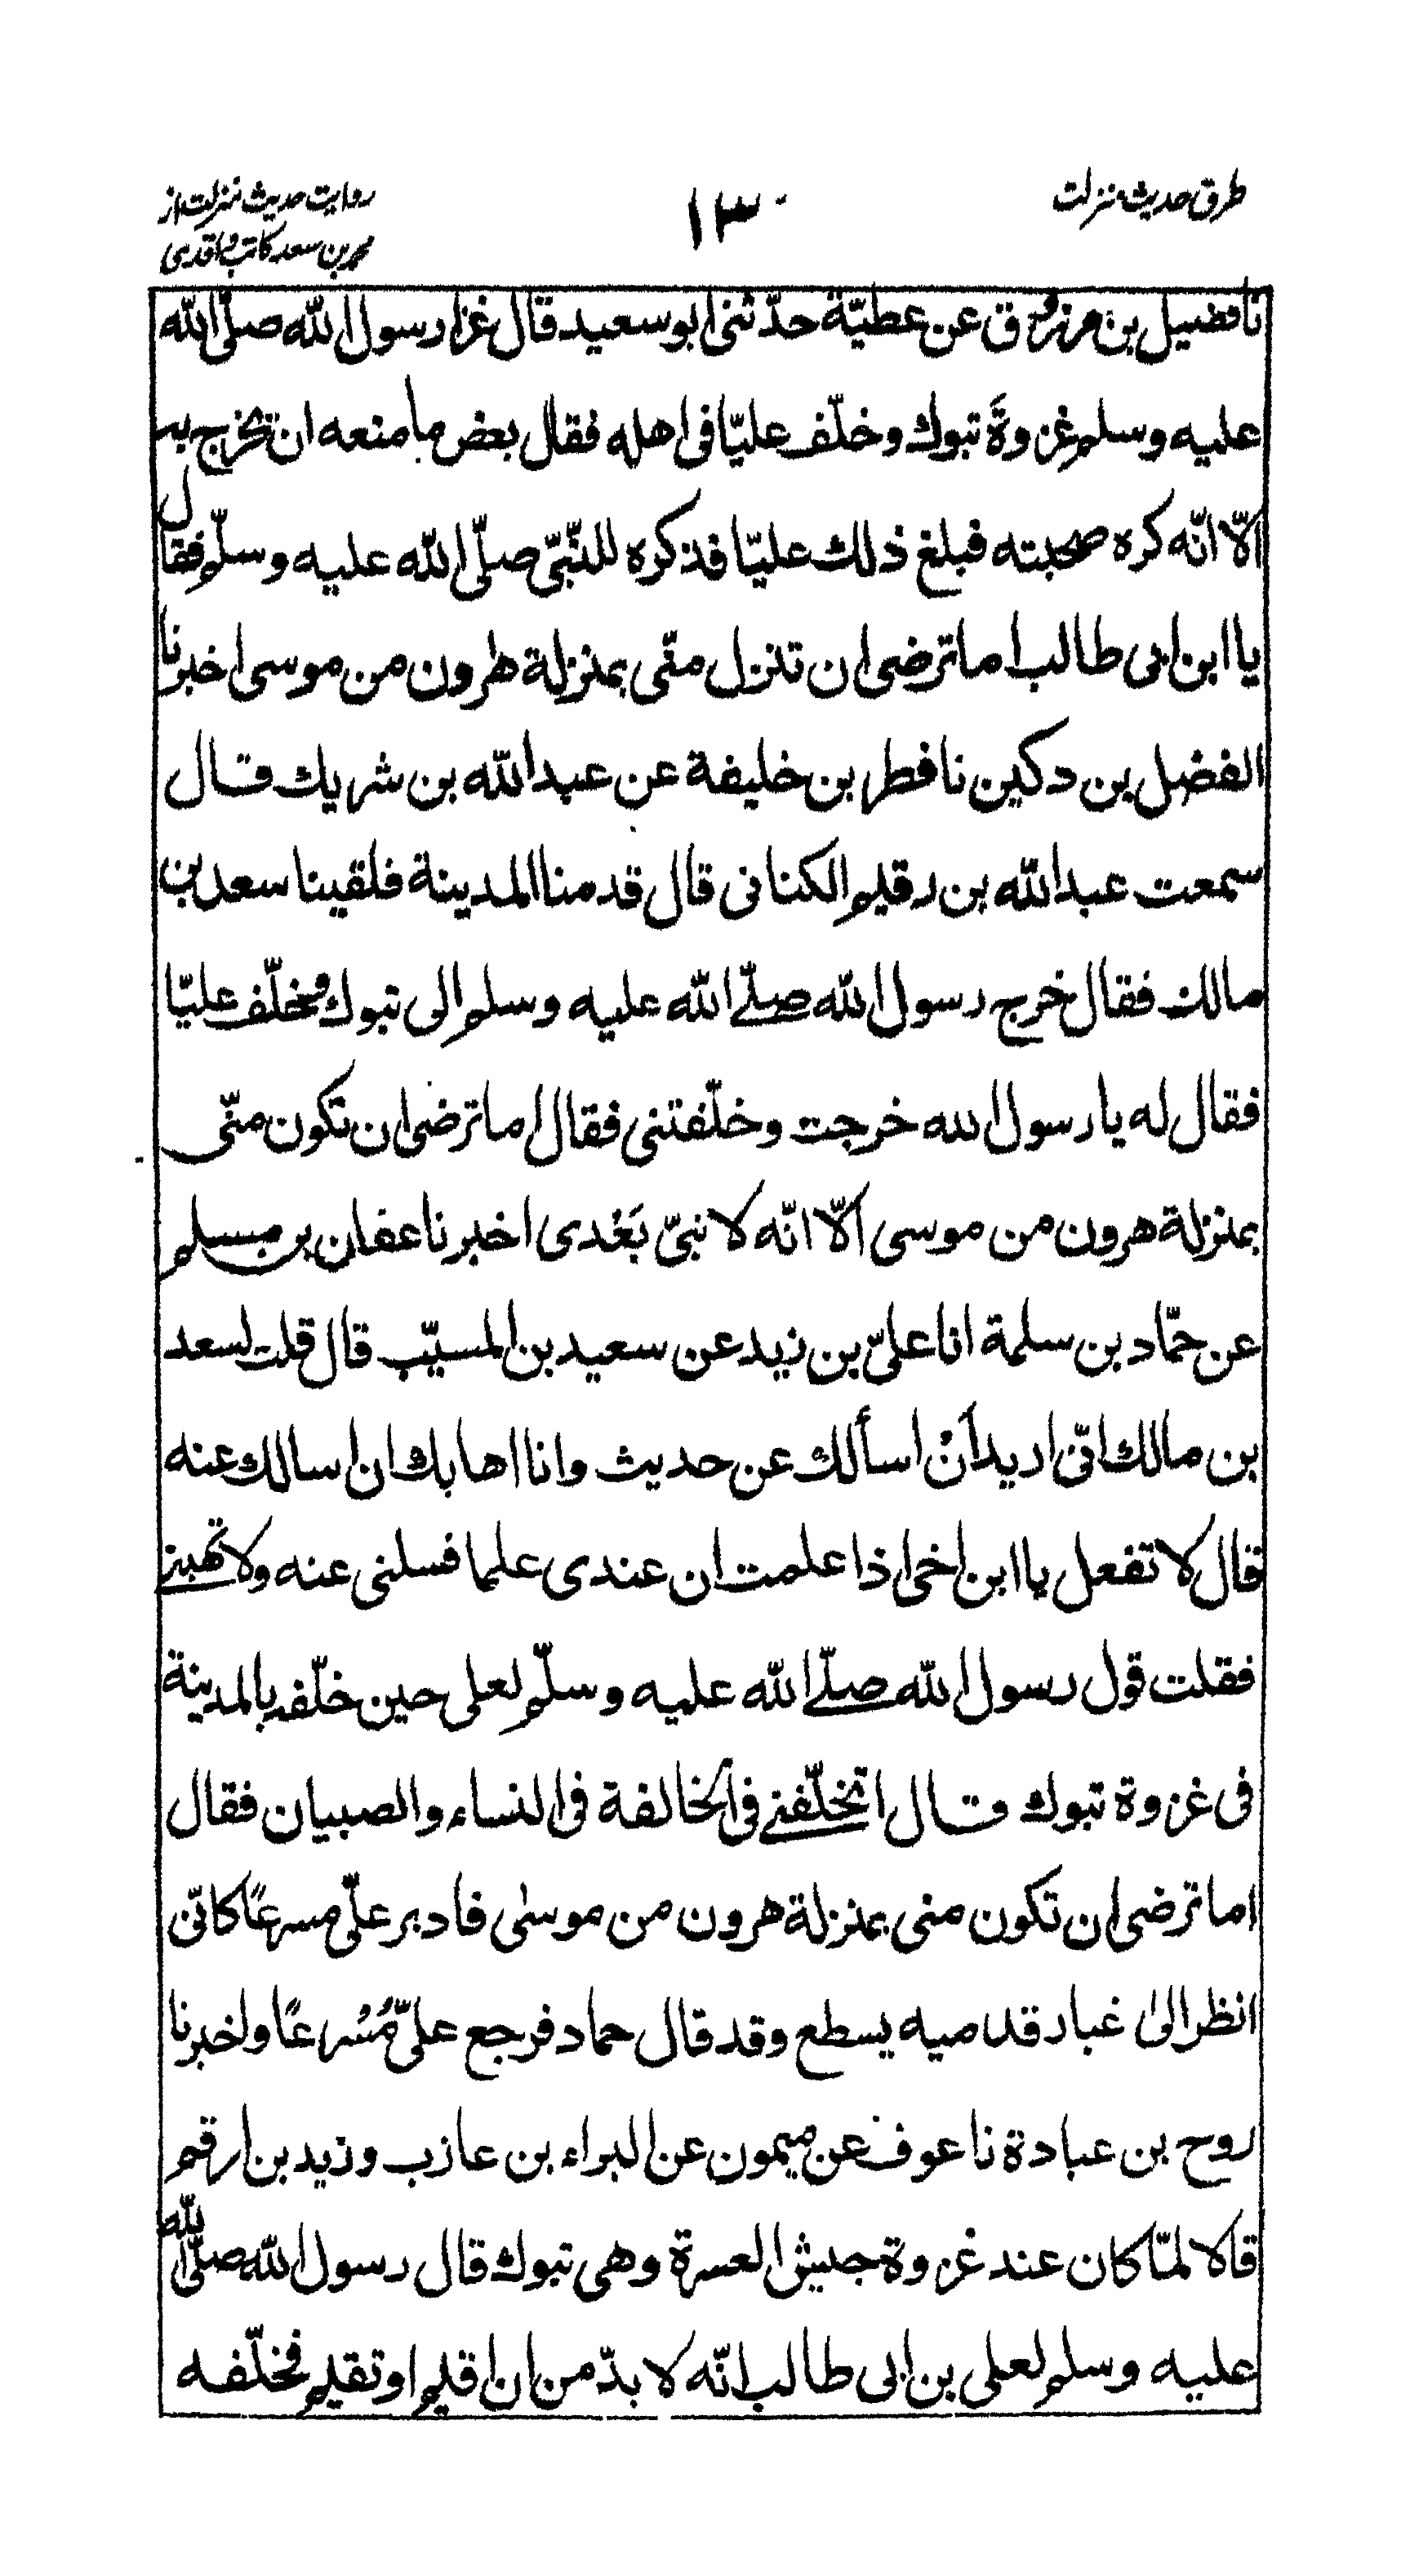 طرق حدیث منزلت
۱۳
روایت حدیث منزلت از
محمد بن سعد کاتب واقدی
نا فضيل بن مرزوق عن عطيّة حدّثنى ابو سعيد قال غزا رسول الله صلّى الله
عليه وسلم غزوةَ تبوك وخلّف عليّا فى اهله فقال بعض ما منعه ان تخرج به
الّا انّه كره صحبته فبلغ ذلك عليّا فذكره للنّبىّ صلّى الله عليه وسلّم فقال
يا ابن ابى طالب اما ترضى ان تنزل منّى بمنزلة هرون من موسى اخبرنا
الفضل بن دكين نا فطر بن خليفة عن عبد الله بن شريك قال
سمعت عبد الله بن رقيم الكنانى قال قدمنا المدينة فلقينا سعد بن
مالك فقال خرج رسول الله صلّے الله عليه وسلم الى تبوك وخلّف عليّا
فقال له يا رسول الله خرجت وخلّفتنى فقال اما ترضى ان تكون منّى
بمنزلة هرون من موسى الّا انّه لا نبىّ بَعْدى اخبرنا عفان بن مسلم
عن حمّاد بن سلمة انا علىّ بن زيد عن سعيد بن المسيّب قال قلت لسعد
بن مالك انّى اريد أنْ اسألك عن حديث وانا اهابك ان اسالك عنه
قال لا تفعل يا ابن اخى اذا علمت ان عندى علما فسلنى عنه ولا تهبنے
فقلت قول رسول الله صلّے الله عليه وسلّم لعلى حين خلّفه بالمدينة
فى غزوة تبوك قال اتخلّفنے فى الخالفة فى النساء والصبيان فقال
اما ترضى ان تكون منى بمنزلة هرون من موسىٰ فادبر علّى مسرعًا كانّى
انظر الىٰ غبار قدميه يسطع وقد قال حماد فرجع علىّ مُسْرعًا واخبرنا
روح بن عبادة نا عوف عن ميمون عن البراء بن عازب وزيد بن ارقم
قالا لمّا كان عند غزوة جيش العسرة وهى تبوك قال رسول الله صلّى الله
عليه وسلم لعلى بن ابى طالب انّه لا بدّ من ان اقيم او تقيم فخلّفه